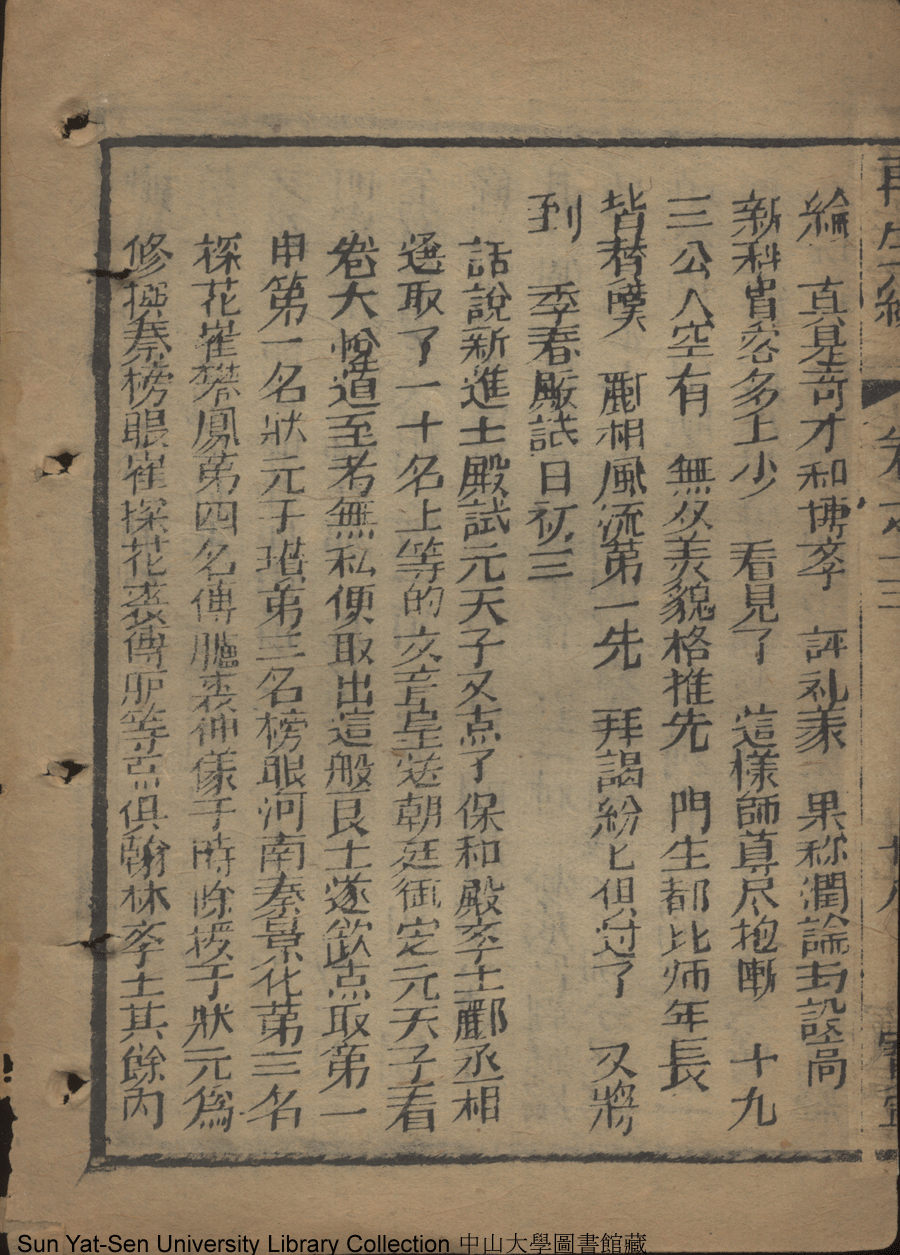 再生緣 卷之十三
綸 真是奇才和博斈 評礼義 果称濶論封設高
新科眷多上少 看見了 這樣師真尽抱慚 十九
三公人空有 無双美貌格推先 門生都比师年長
皆替嘆 酈相風流第一先 拜謁紛匕俱过了 又將
到 季春殿試日初三
話說新進士殿試元天子又点了保和殿斈士酈丞相
選取了一十名上等的文章呈送朝廷御定元天子看
卷大悅道至者無私便取出這般良士遂欽点取第一
甲第一名狀元于瑎第三名榜眼河南秦景化第三名
探花崔攀鳳第四名傅臚裘神儀于時除授于狀元為
修撰秦榜眼崔探花裘傅胪等点俱翰林斈士其餘丙
Sun Yat-Sen University Library Collection 中山大學圖書館藏